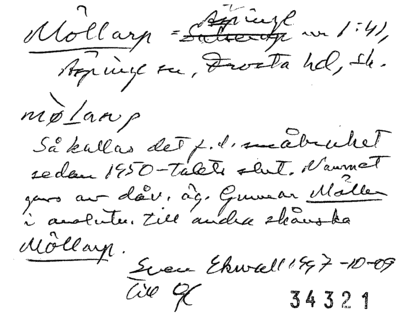 Äspinge
Möllarp = Satserup nr 1:41,
Äspinge sn, Frosta hd, Sk.
mølarp
Så kallas det f.d. småbruket
sedan 1950-talets slut. Namnet
gavs av dåv. äg. Gunnar Möller
i anslutn. till andra skånska
Möllarp.
Sven Ekwall 1997-10-09
till
34321